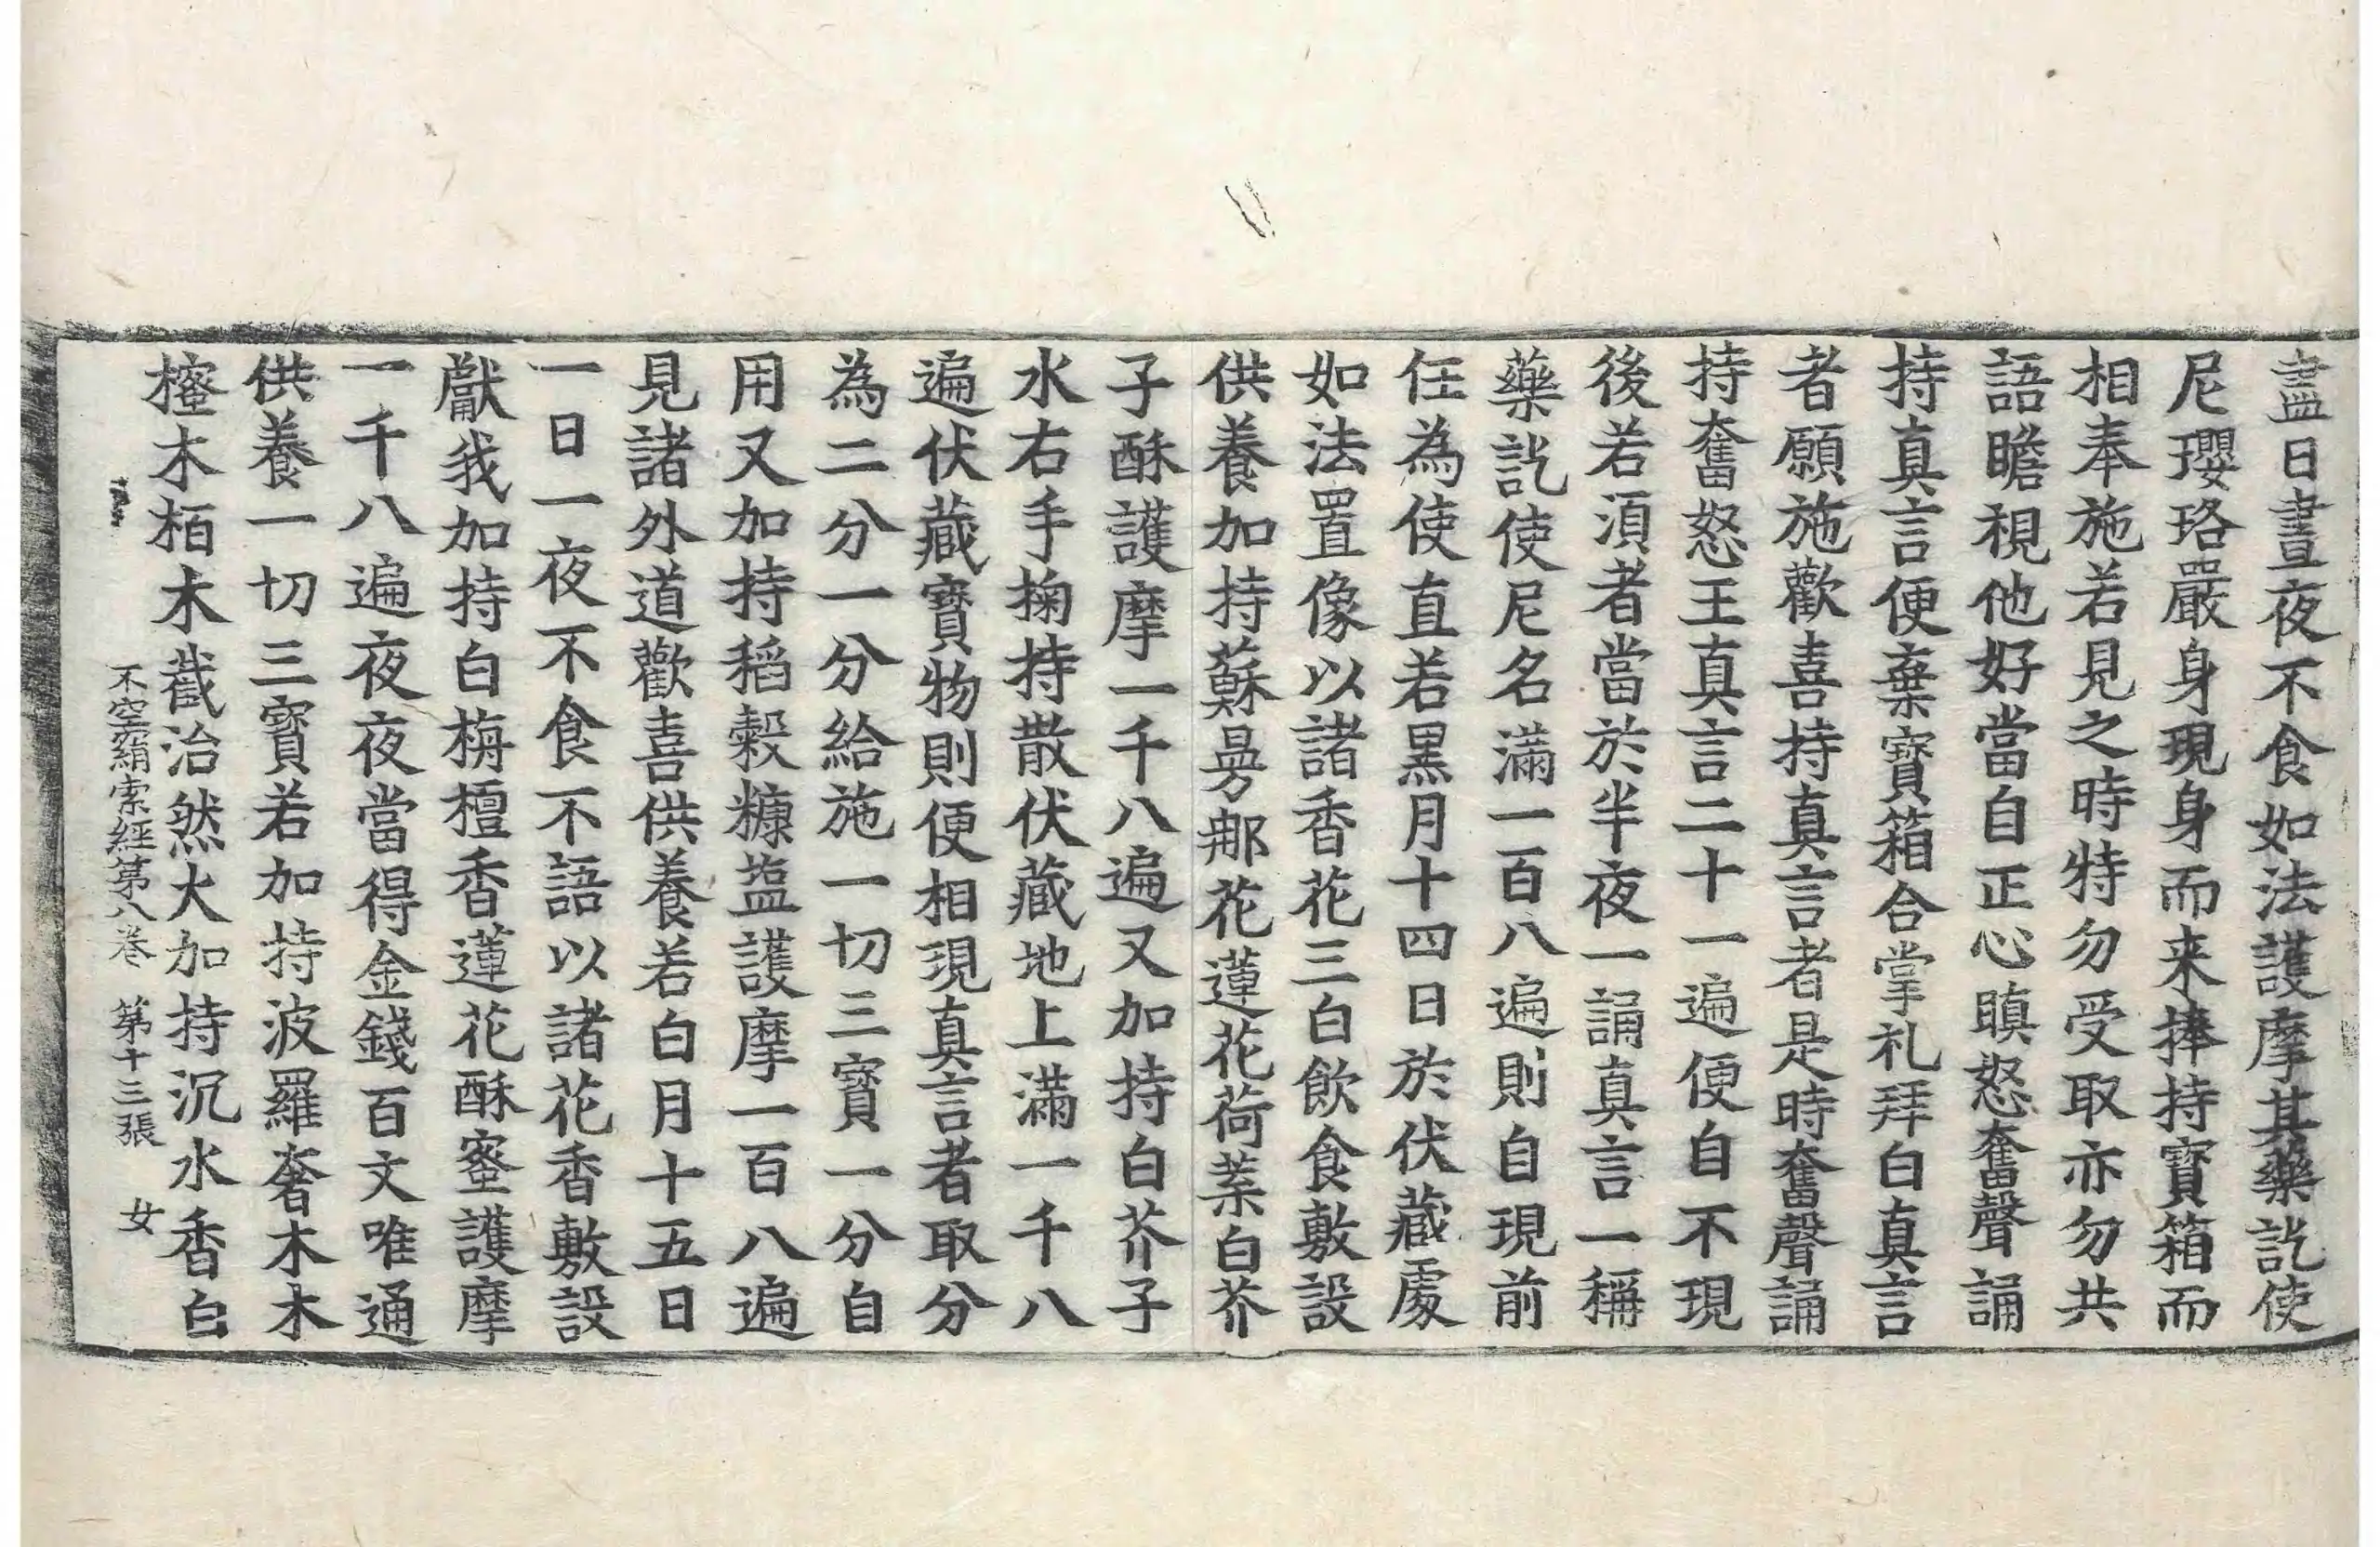 盡日晝夜不食如法護摩其藥訖使
尼瓔珞嚴身現身而来捧持寶箱而
相奉施若見之時特勿受取亦勿共
語瞻視他好當自正心瞋怒奮聲誦
持真言便棄寶箱合掌礼拜白真言
者願施歡喜持真言者是時奮聲誦
持奮怒王真言二十一遍便自不現
後若湏者當於半夜一誦真言一稱
藥訖使尼名滿一百八遍則自現前
任為使直若黑月十四日於伏藏處
如法置像以諸香花三白飲食敷設
供養加持蘇曼那花蓮花荷葉白芥
子酥護摩一千八遍又加持白芥子
水右手掬持散伏藏地上滿一千八
遍伏藏寶物則便相現真言者取分
為二分一分給施一切三寶一分自
用又加持稻穀糠塩護摩一百八遍
見諸外道歡喜供養若白月十五日
一日一夜不食不語以諸花香敷設
獻我加持白栴檀香蓮花酥蜜護摩
一千八遍夜夜當得金錢百文唯通
供養一切三寶若加持波羅奢木木
榓木栢木截治然火加持沉水香白
不空羂索經第八卷　第十三張　女